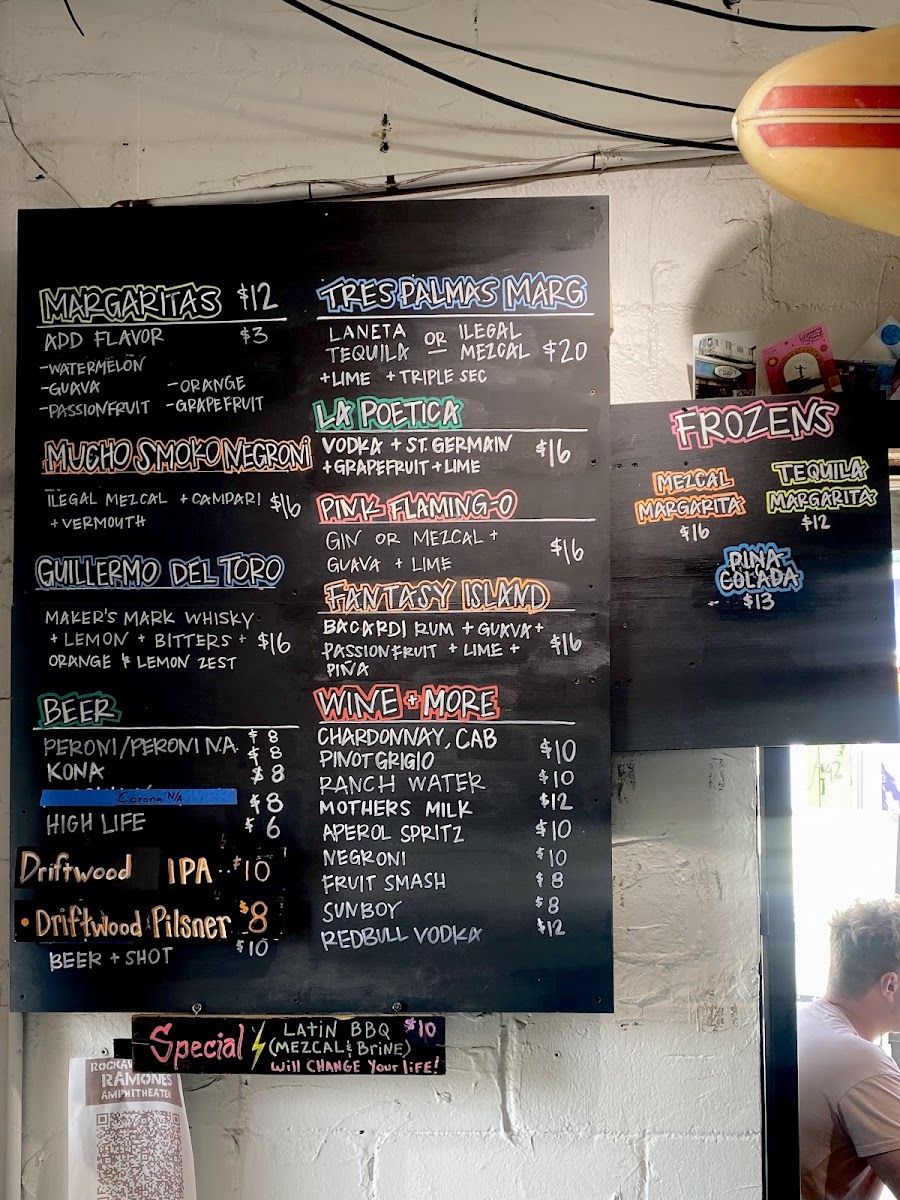 MARGARITAS $12
ADD FLAVOR $3
-WATERMELON
-GUAVA -ORANGE
-PASSIONFRUIT -GRAPEFRUIT
MUCHO SMOKO NEGRONI
ILEGAL MEZCAL + CAMPARI $16
+ VERMOUTH
GUILLERMO DEL TORO
MAKER'S MARK WHISKY
+ LEMON + BITTERS + $16
ORANGE & LEMON ZEST
BEER
PERONI/PERONI N.A. $8
$8
KONA $8
Corona N/A $8
HIGH LIFE $6
Driftwood IPA..$10
• Driftwood Pilsner $8
BEER + SHOT $10
TRES PALMAS MARG
LANETA OR ILEGAL
TEQUILA — MEZCAL $20
+ LIME + TRIPLE SEC
LA POETICA
VODKA + ST. GERMAIN $16
+ GRAPEFRUIT + LIME
PINK FLAMING-O
GIN OR MEZCAL + $16
GUAVA + LIME
FANTASY ISLAND
BACARDI RUM + GUAVA +
PASSIONFRUIT + LIME + $16
PIÑA
WINE + MORE
CHARDONNAY, CAB
PINOT GRIGIO $10
RANCH WATER $10
MOTHERS MILK $12
APEROL SPRITZ $10
NEGRONI $10
FRUIT SMASH $8
SUNBOY $8
REDBULL VODKA $12
FROZENS
MEZCAL
MARGARITA
$16
TEQUILA
MARGARITA
$12
PINA
COLADA
$13
Special LATIN BBQ $10
(MEZCAL & BRINE)
WILL CHANGE YOUR LIFE!
RAMONES
AMPHITHEATER